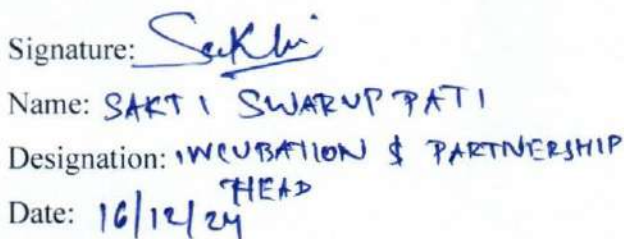 Signature: Sakti
Name: SAKTI SWARUP PATI
Designation: INCUBATION & PARTNERSHIP
HEAD
Date: 16/12/24